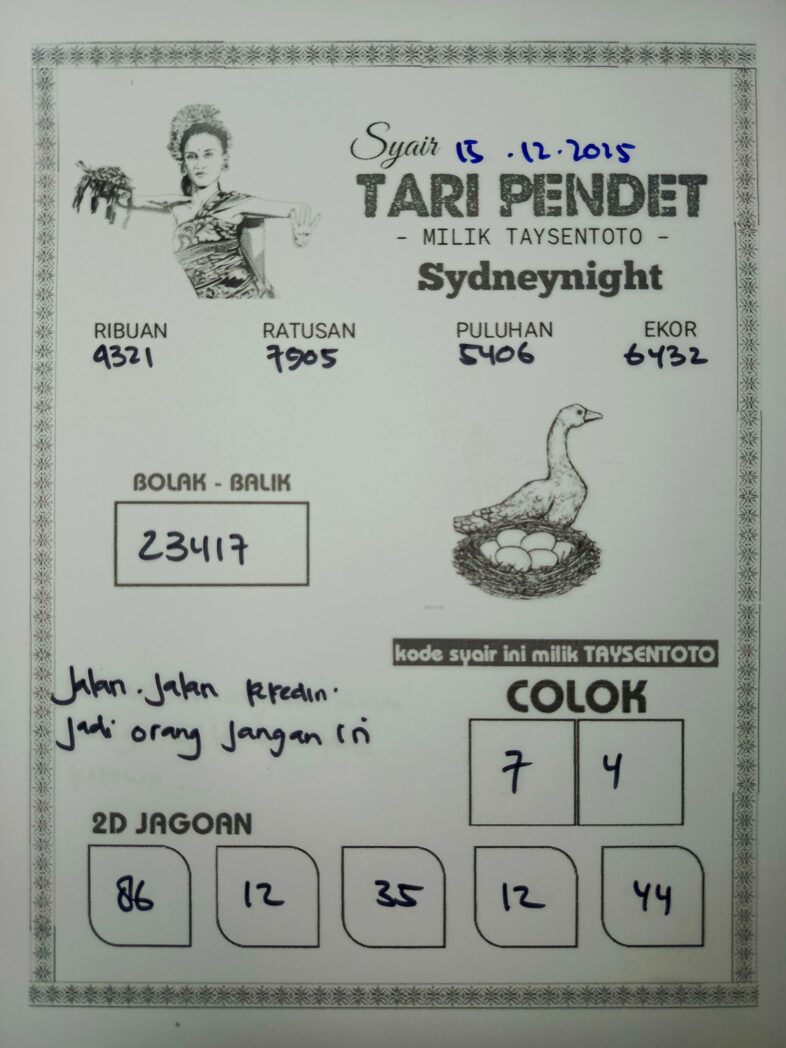 Syair 15.12.2025
TARI PENDET
- MILIK TAYSENTOTO -
Sydneynight
RIBUAN RATUSAN PULUHAN EKOR
9321 7905 5406 6432
BOLAK - BALIK
23417
kode syair ini milik TAYSENTOTO
Jalan. Jalan
Jadi orang Jangan iri
COLOK
7 4
2D JAGOAN
86 12 35 12 44